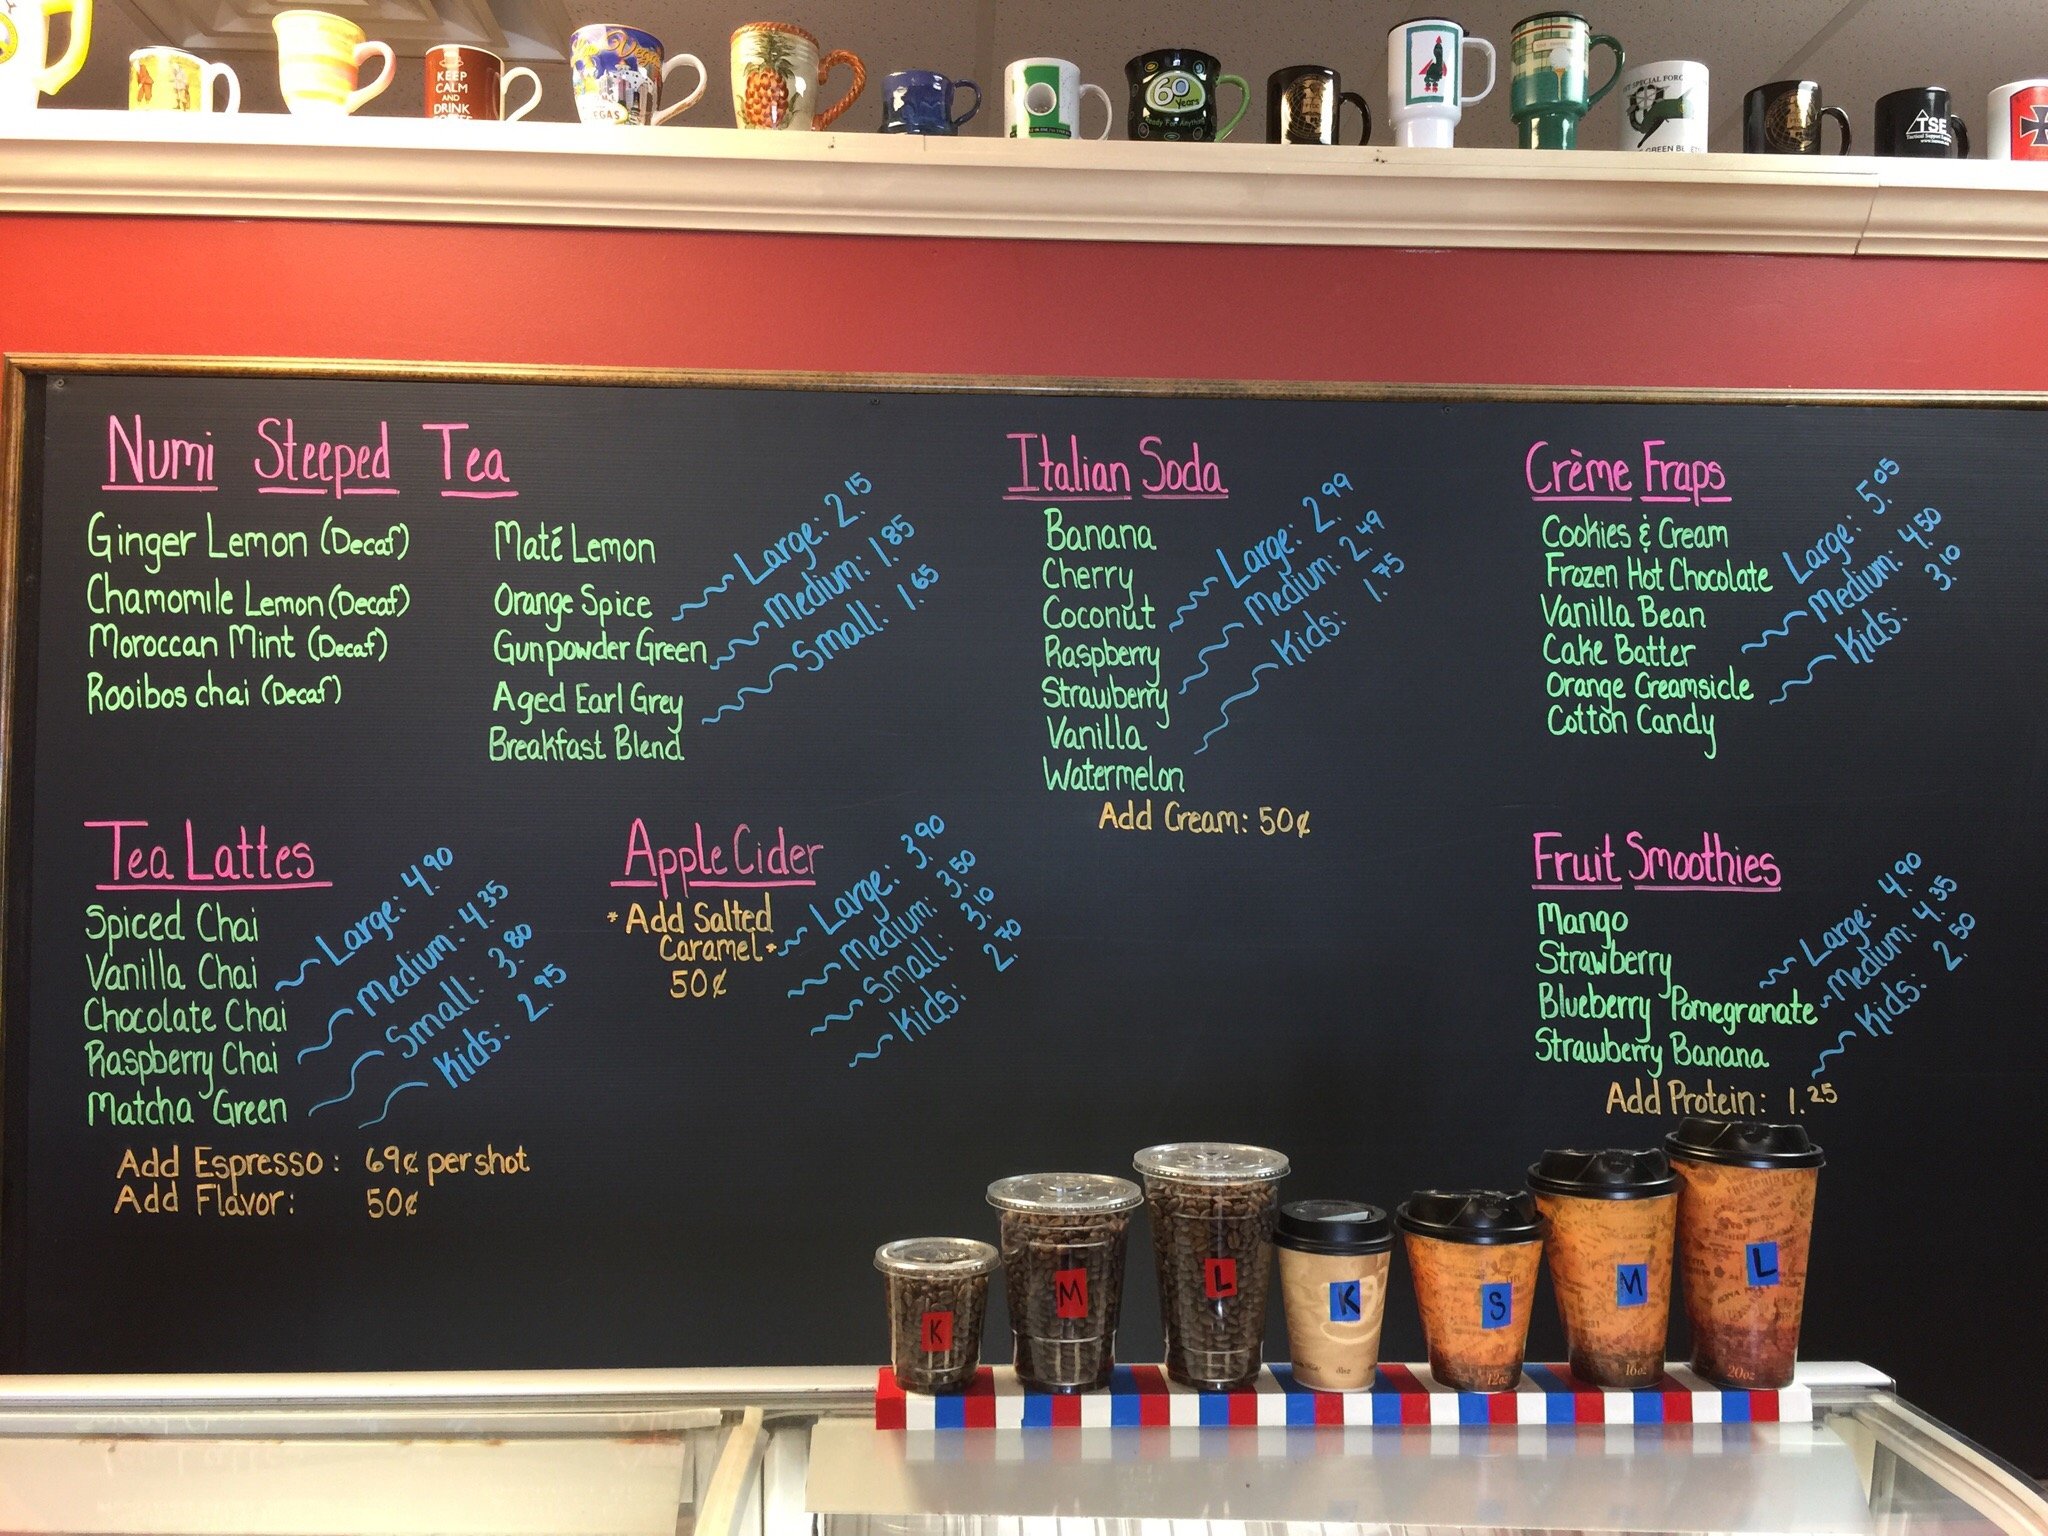 KEEP
CALM
AND
DRINK
VEGAS
60
Years
Ready For Anything
TSE
Numi Steeped Tea
Ginger Lemon (Decaf)
Chamomile Lemon (Decaf)
Moroccan Mint (Decaf)
Rooibos chai (Decaf)
Maté Lemon
Orange Spice
Gunpowder Green
Aged Earl Grey
Breakfast Blend
Large: 2.15
Medium: 1.85
Small: 1.65
Italian Soda
Banana
Cherry
Coconut
Raspberry
Strawberry
Vanilla
Watermelon
Large: 2.99
Medium: 2.49
Kids: 1.75
Add Cream: 50¢
Crème Fraps
Cookies & Cream
Frozen Hot Chocolate
Vanilla Bean
Cake Batter
Orange Creamsicle
Cotton Candy
Large: 5.05
Medium: 4.50
Kids: 3.10
Tea Lattes
Spiced Chai
Vanilla Chai
Chocolate Chai
Raspberry Chai
Matcha Green
Large: 4.90
Medium: 4.35
Small: 3.80
Kids: 2.95
Add Espresso: 69¢ per shot
Add Flavor: 50¢
Apple Cider
*Add Salted
Caramel*
50¢
Large: 3.90
Medium: 3.50
Small: 3.10
Kids: 2.70
Fruit Smoothies
Mango
Strawberry
Blueberry Pomegranate
Strawberry Banana
Large: 4.90
Medium: 4.35
Kids: 2.50
Add Protein: 1.25
K
M
L
K
S
M
L
12oz
16oz
20oz